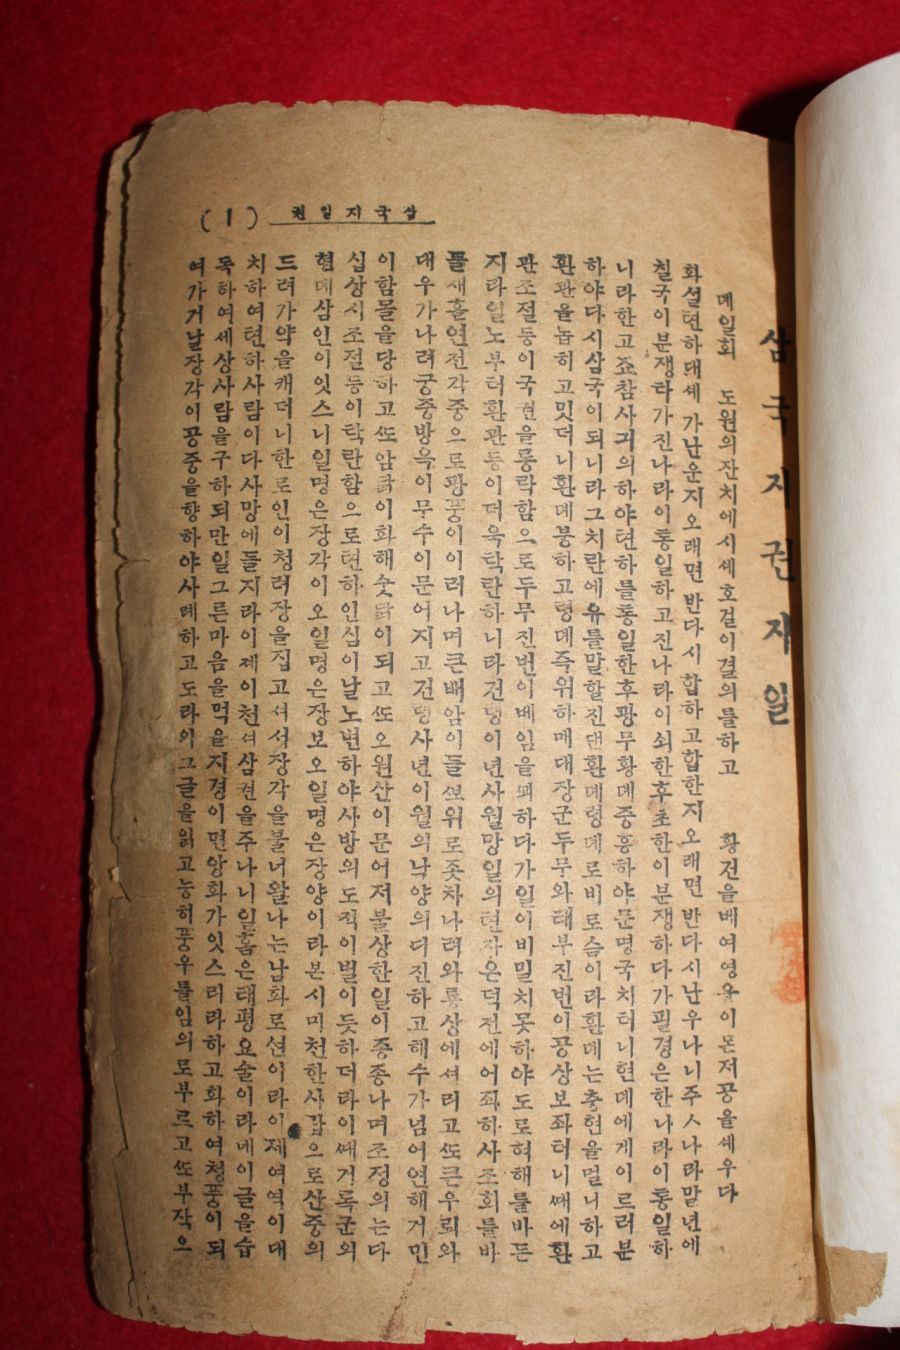 삼국지일권 (1)
삼국지권지일
뎨일회 도원의잔치에시셰호걸이결의를하고 황건을베여영웅이몬저공을셰우다
화셜텬하대셰가난운지오래면반다시합하고합한지오래면반다시난우나니주ㅅ나라말년에
칠국이분쟁타가진나라이통일하고진나라이쇠한후초한이분쟁하다가필경은한나라이통일하
니라한고죠참사긔의하야텬하를통일한후광무황뎨중흥하야문명국치터니헌뎨에게이르러분
하야다시삼국이되니라그치란에유를말할진댄환뎨령뎨로비로슴이라환뎨는충현을멀니하고
환관을놉히고밋더니환뎨붕하고령뎨즉위하매대장군두무와태부진번이공상보좌터니쌔에환
관조절등이국권을롱락함으로두무진번이베임을꾀하다가일이비밀치못하야도로혀해를바든
지라일노부터환관등이더욱탁란하니라건녕이년사월망일의텬자온덕전에어좌하사조회를바
들새홀연전각중으로광풍이이러나며큰배암이들쏘위로좃차나려와룡상에셔리고쏘큰우뢰와
대우가나려궁중방옥이무수이문어지고건녕사년이월의낙양의디진하고해수가넘어연해거민
이함몰을당하고쏘암닭이화해숫닭이되고쏘오원산이문어저불상한일이종종나며조정의는다
십상시조절등이탁란함으로텬하인심이날노변하야사방의도적이벌이듯하더라이쌔거록군의
형뎨삼인이잇스니일명은장각이오일명은장보오일명은장양이라본시미천한사람으로산중의
드러가약을캐더니한로인이청려장을집고셔서장각을불너왈나는남화로션이라이제여역이대
치하여텬하사람이다사망에들지라이제이천셔삼권을주나니일홈은태평요술이라네이글을습
독하여세상사람을구하되만일그른마음을먹을지경이면앙화가잇스리라하고화하여청풍이되
여가거날장각이공중을향하야사례하고도라와그글을읽고능히풍우를임의로부르고쏘부작으